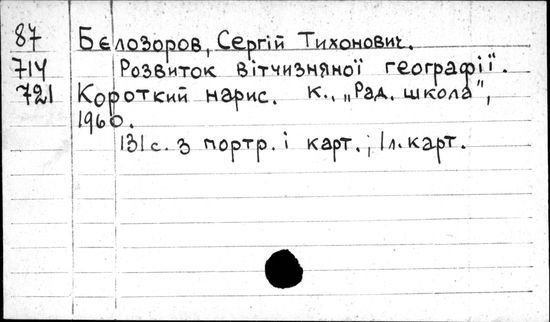 87 Бєлозоров, Сергій Тихонович.
714 Розвиток вітчизняної географії.
721 Короткий нарис. К., „Рад. школа",
1960.
131 с. з портр. і карт.; 1 л. карт.